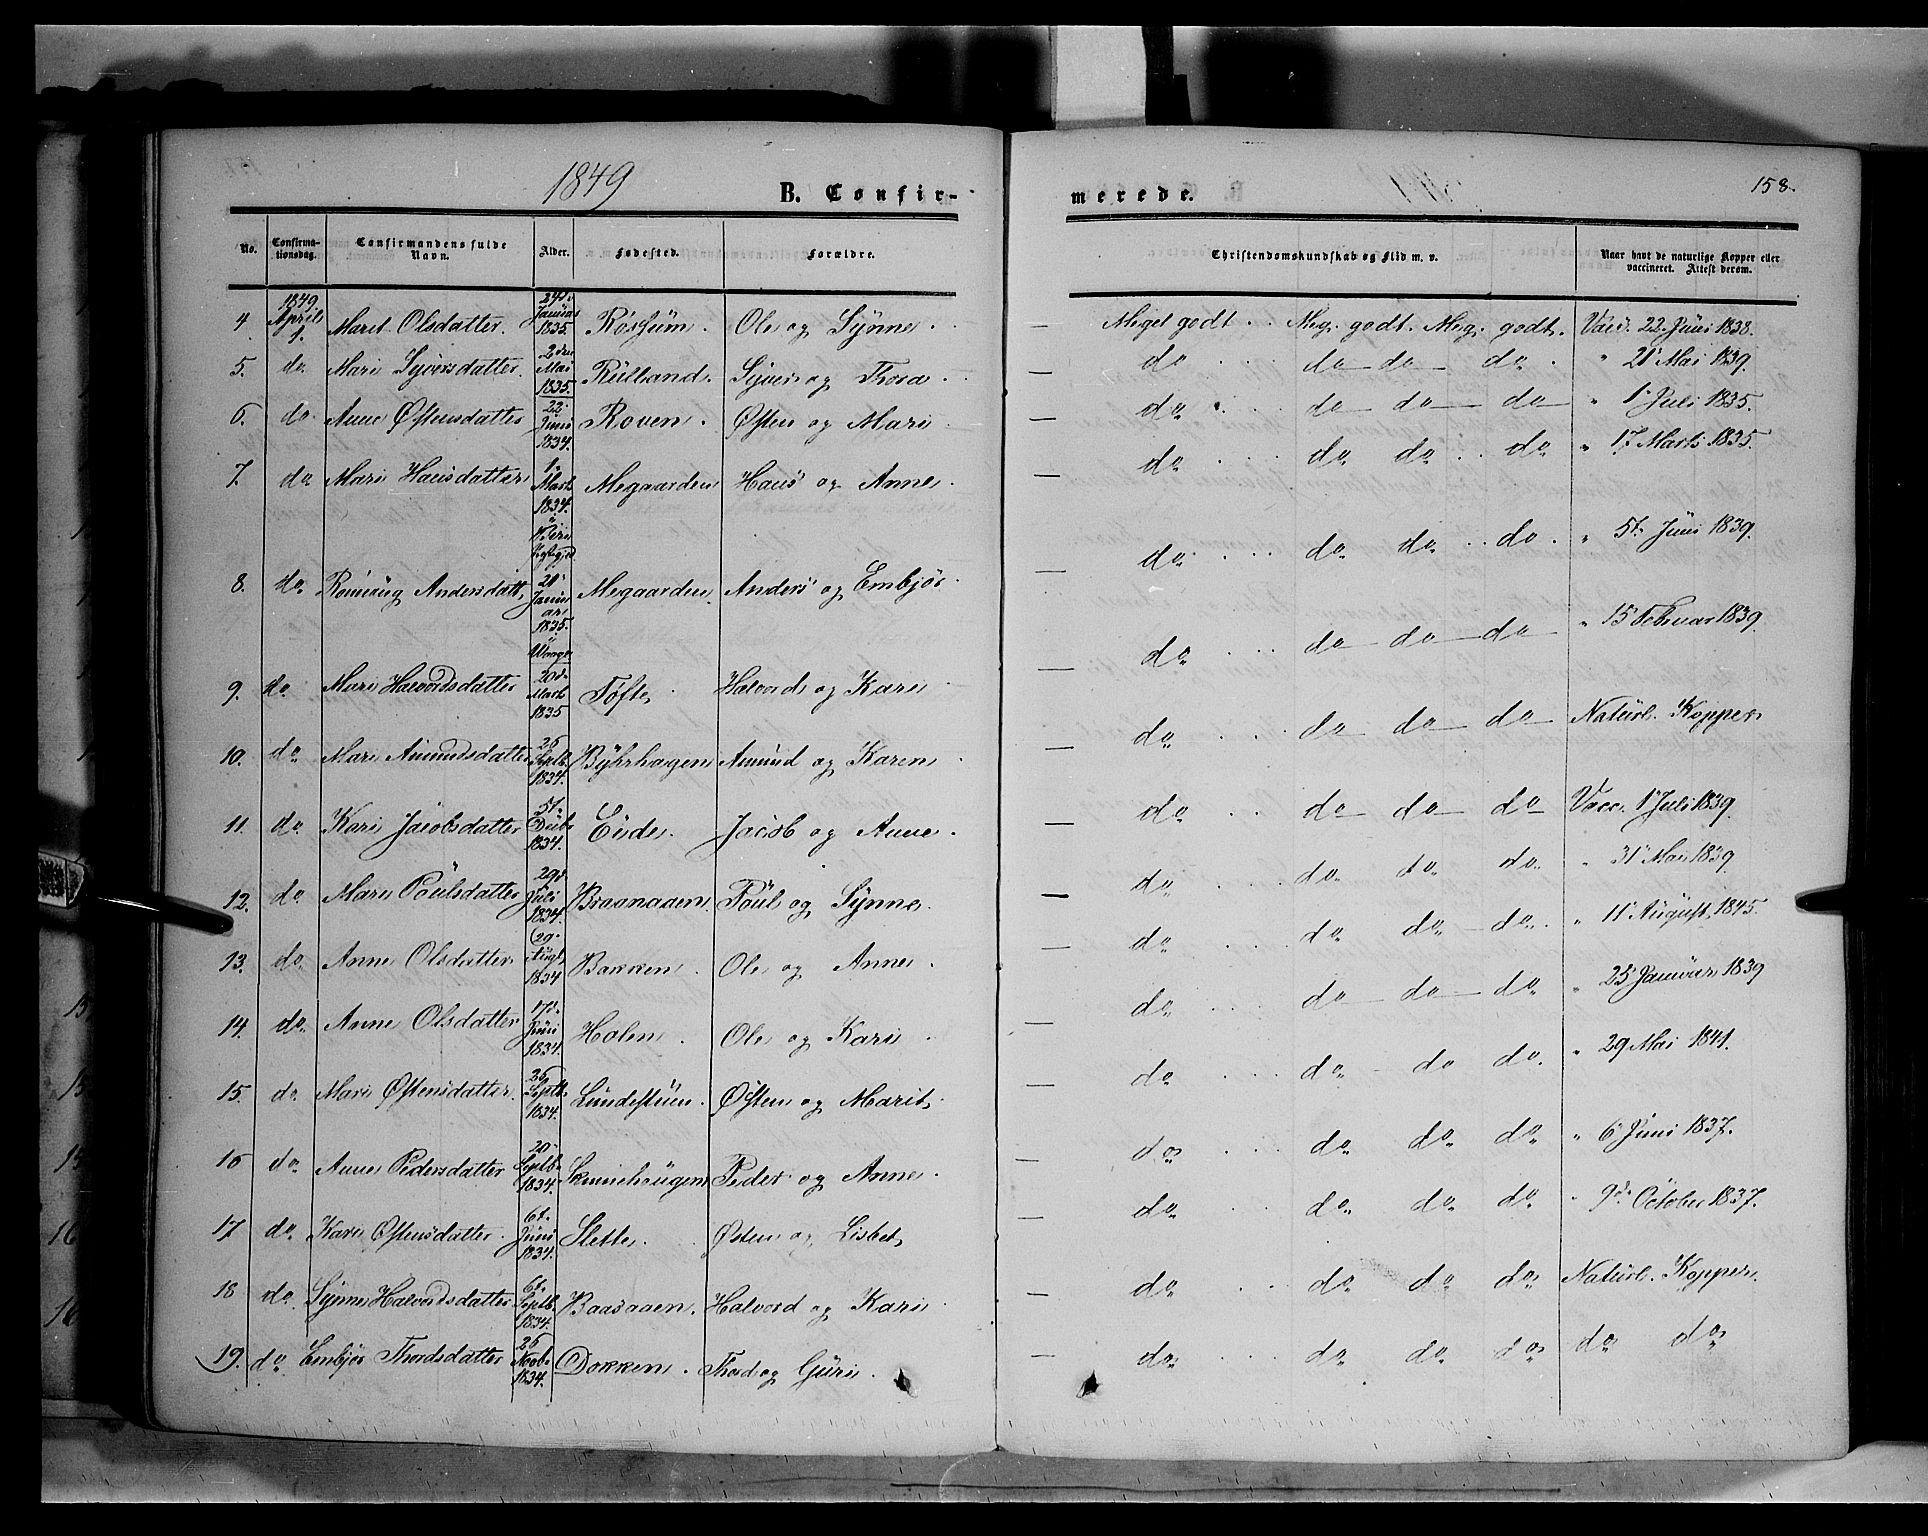 1849
B. Confir-
merede.
158.
No. Confirma-tionsdag. Confirmandens fulde Navn. Alder. Fødested. Forældre. Christendomskundskab og Flid m. v. Naar havt de naturlige Kopper eller vaccineret. Attest derom.
4 1849 April 1. Marit Olsdatter. 24d Januar 1835. Ole og Synne. — Meget godt . . Meg. godt. Meg. godt. Vacc. 22 Juni 1838.
5. do. Mari Syversdatter. 2den Mai 1835. Rulland. Syver og Thora — do do — do — do " 21 Mai 1839.
6. do Anne Østensdatter 22. Juni 1834. Roven. Østen og Mari — do do — do — do " 1 Juli 1835.
7. do Mari Hansdatter 1. Marts 1834. Megaarden Hans og Anne. — do do do do " 17 Marts 1835.
8. do. Andersdatt. 21 Januar 1835. Megaarden. Anders og Embjør. — do. do. do. do. " 5t Juni 1839.
9. do. Mari Halvordsdatter 20d. Marts 1835 Tøfte. Halvord og Kari — do do — do — do — " 15 Februar 1839.
10. do. Mari Amundsdatter 25 Septb. 1834. Byhrhagen Amund og Karen — do do — do — do — Naturl. Kopper
11. do. Kari Jacobsdatter 5t. 1834. Eide. Jacob og Anne. — do do — do — do — Vacc. 1 Juli 1839.
12. do. Mari Poulsdatter 29d. Juli 1834. Braanaaen. Poul og Synne. — do do. do. do. " 31 Mai 1839.
13. do. Anne Olsdatter 29. Augt. 1834 Bakken. Ole og Anne. — do do do — do. " 11 August 1845.
14. do. Anne Olsdatter 17. Juni 1834. Holen. Ole og Kari. — do do — do — do " 25 Januar 1839
15. do. Mari Østensdatter. 25 Septb. 1834. Lundestuen. Østen og Marit. — do do — do do. " 29 Mai 1841.
16 do. Anne Pedersdatter 20 Septb. 1834. Skinnehaugen Peder og Anne. — do do do do " 6 Juni 1837.
17 do. Kari Østensdatter. 6t. Juni 1834. Slette. Østen og Lisbet, — do do. do do " 9d. October 1837.
18 do. Synne Halvordsdatter 6t. Septb. 1834. Baasaaen. Halvord og Kari — do do do do Naturl. Kopper.
19. do Embjør Thordsdatter 25 Novb. 1834. Dokken. Thord og Guri. — do do do do do do